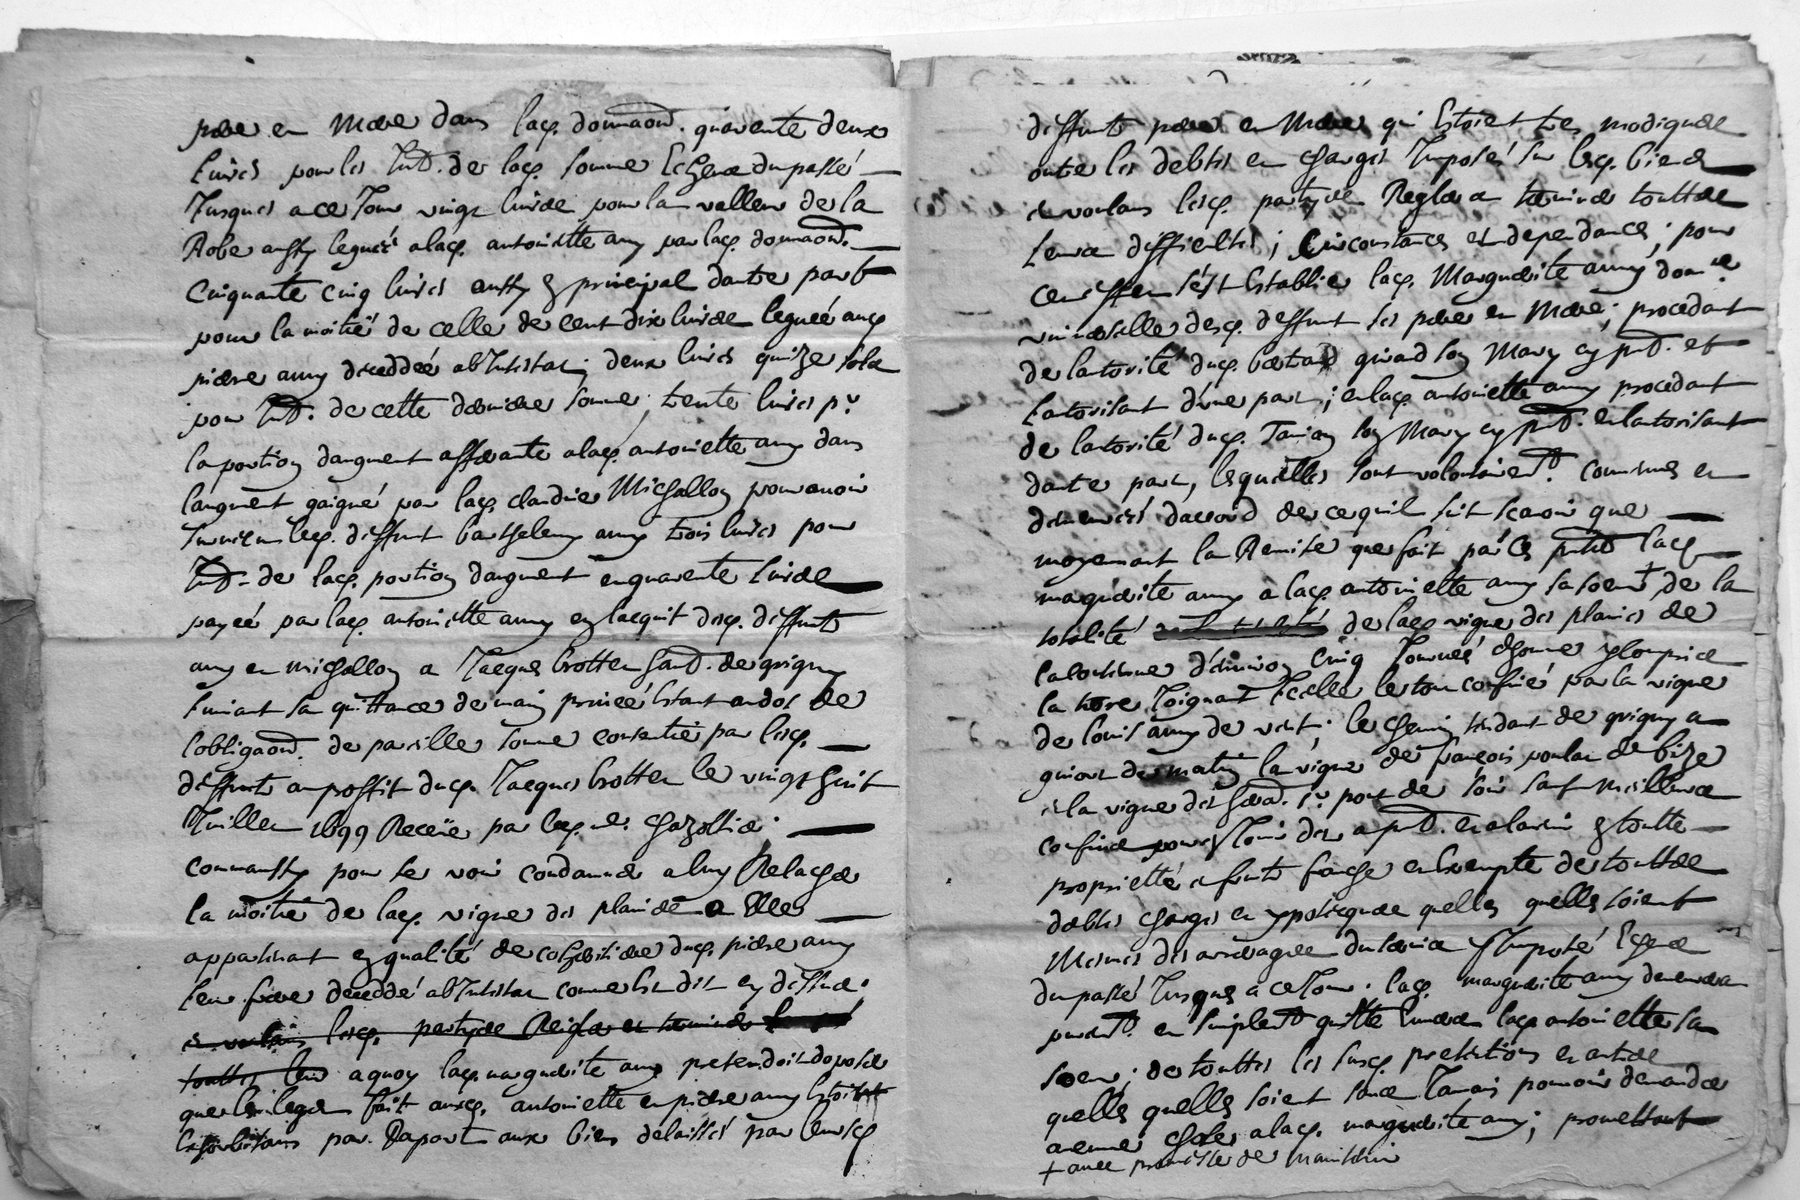 pere en mere dans lad. donnaon. quarente deux
livres pour les Int. de lad. somme Echeue du passé
Jusques a ce Jour vingt livres pour la valleur de la
Robe aussy leguée a lad. antoinette amy par lad. donnaon.
Cinquante cinq livres aussy principal dautre part
pour la moitié de celle de cent dix livres leguée aud.
pierre amy deceddé ab Intestat; deux livres quinze sols
pour Int. de cette derniere somme; trente livres pr.
la portion daugment afferante a lad. antoinette amy dans
laugment gaigné par lad. claudine Michallon pour avoir
survescu led. deffunt barthelemy amy trois livres pour
Int. de lad. portion daugment en quarente livres
payée par lad. antoinette amy en lacquit desd. deffunts
amy en michallon a Jacques brotten de grigny
suivant sa quittance de main privée estant au dos de
lobligaon. de pareille somme consentie par lesd.
deffunts au proffit dud. Jacques brotten le vingt huit
Juillet 1699 Receüe par led. me.
comm'aussy pour se voir condamner a luy Relacher
la moitié de lad. vigne des plaines a Elles
appartenant en qualité de cohéritiere dud. pierre amy
leur frere deceddé ab Intestat comme est dit cy dessus.
lesd. partyes Reigler en terminer
touttes leur a quoy lad. marguerite amy pretendoit doposer
que les legats fait ausd. antoinette en pierre amy estoit
Exorbitans par Raport aux biens delaissés par leursd.
deffunts pere en mere qui Estoient tres modiques
outre les debtes en charges Imposés sur lesd. biens
en voulans lesd. partyes Regler en terminer touttes
leurs difficultés; Circonstances et dependances; pour
ce s'est Establie lad. Marguerite amy
desd. deffunt ses pere en mere; procedant
de lautorité dud. bertrand girard son Mary cy prnt. et
lautorisant d'une part; en lad. antoinette amy procedant
de lautorité dud. Janion son Mary cy prnt. en lautorisant
dautre part, lesquelles sont volontairemt. convenues en
demeurés daccord de ce quil suit scavoir que
moyennant la Remise que fait par Ces prntes lad.
marguerite amy a lad. antoinette amy sa soeur + de la
totalité de lad. vigne des plaines de
la contenue d'environ Cinq Journées d'homme y compris
la terre Joignant Icelle le tout confiné par la vigne
de louis amy de vent; le chemin tendant de grigny a
givors de matin la vigne de françois poulat de bize
en la vigne des de soir sauf meilleurs
confins pour en Jouir des a prnt. en a lavenir en toutte
proprietté en fruits franche en Exempte de touttes
debtes charges en ypotecques quelles quelles soient
Mesmes des arrerages du servis y Imposé Echeus
du passé Jusques a ce Jour. lad. marguerite amy demeurera
puremt. en simplemt. quitte Envers lad. antoinette sa
soeur; de touttes les susd. pretentions en autres
quelles quelles soient sans Jamais pouvoir demander
aucunes choses a lad. marguerite amy; promettant
+ avec promesse de maintenir